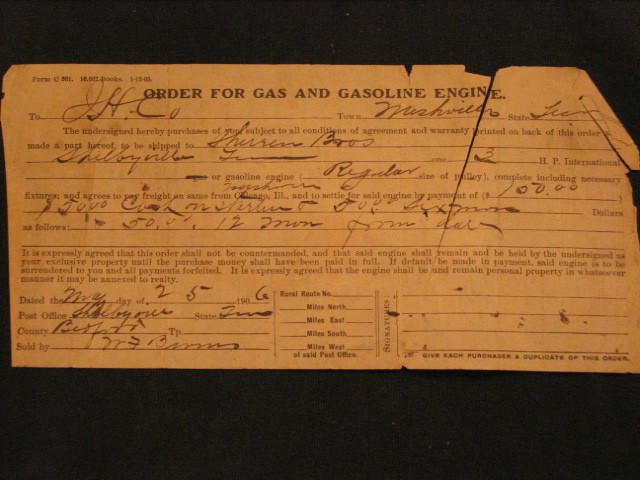 Form C 301. 10,002 Books. 1-12-05.
ORDER FOR GAS AND GASOLINE ENGINE.
To J.H. Co Town Nashville State Tenn
The undersigned hereby purchases of you, subject to all conditions of agreement and warranty printed on back of this order &
made a part hereof, to be shipped to Bros
Shelbyville Tenn one 3 H. P. International
or gasoline engine ( Regular size of pulley), complete including necessary
fixtures; and agrees to pay freight on same from Chicago, Ill., and to settle for said engine by payment of ($ 150.00
5000 Cash on 50.00 Dollars
as follows: 50.00 12 mon from date
It is expressly agreed that this order shall not be countermanded, and that said engine shall remain and be held by the undersigned as
your exclusive property until the purchase money shall have been paid in full. If default be made in payment, said engine is to be
surrendered to you and all payments forfeited. It is expressly agreed that the engine shall be and remain personal property in whatsoever
manner it may be annexed to realty.
Dated the day of 25 1906
Post Office Shelbyville State Tenn
County Bedford Tp.
Sold by
Rural Route No.
Miles North
Miles East
Miles South
Miles West
of said Post Office.
SIGNATURES:
GIVE EACH PURCHASER A DUPLICATE OF THIS ORDER.